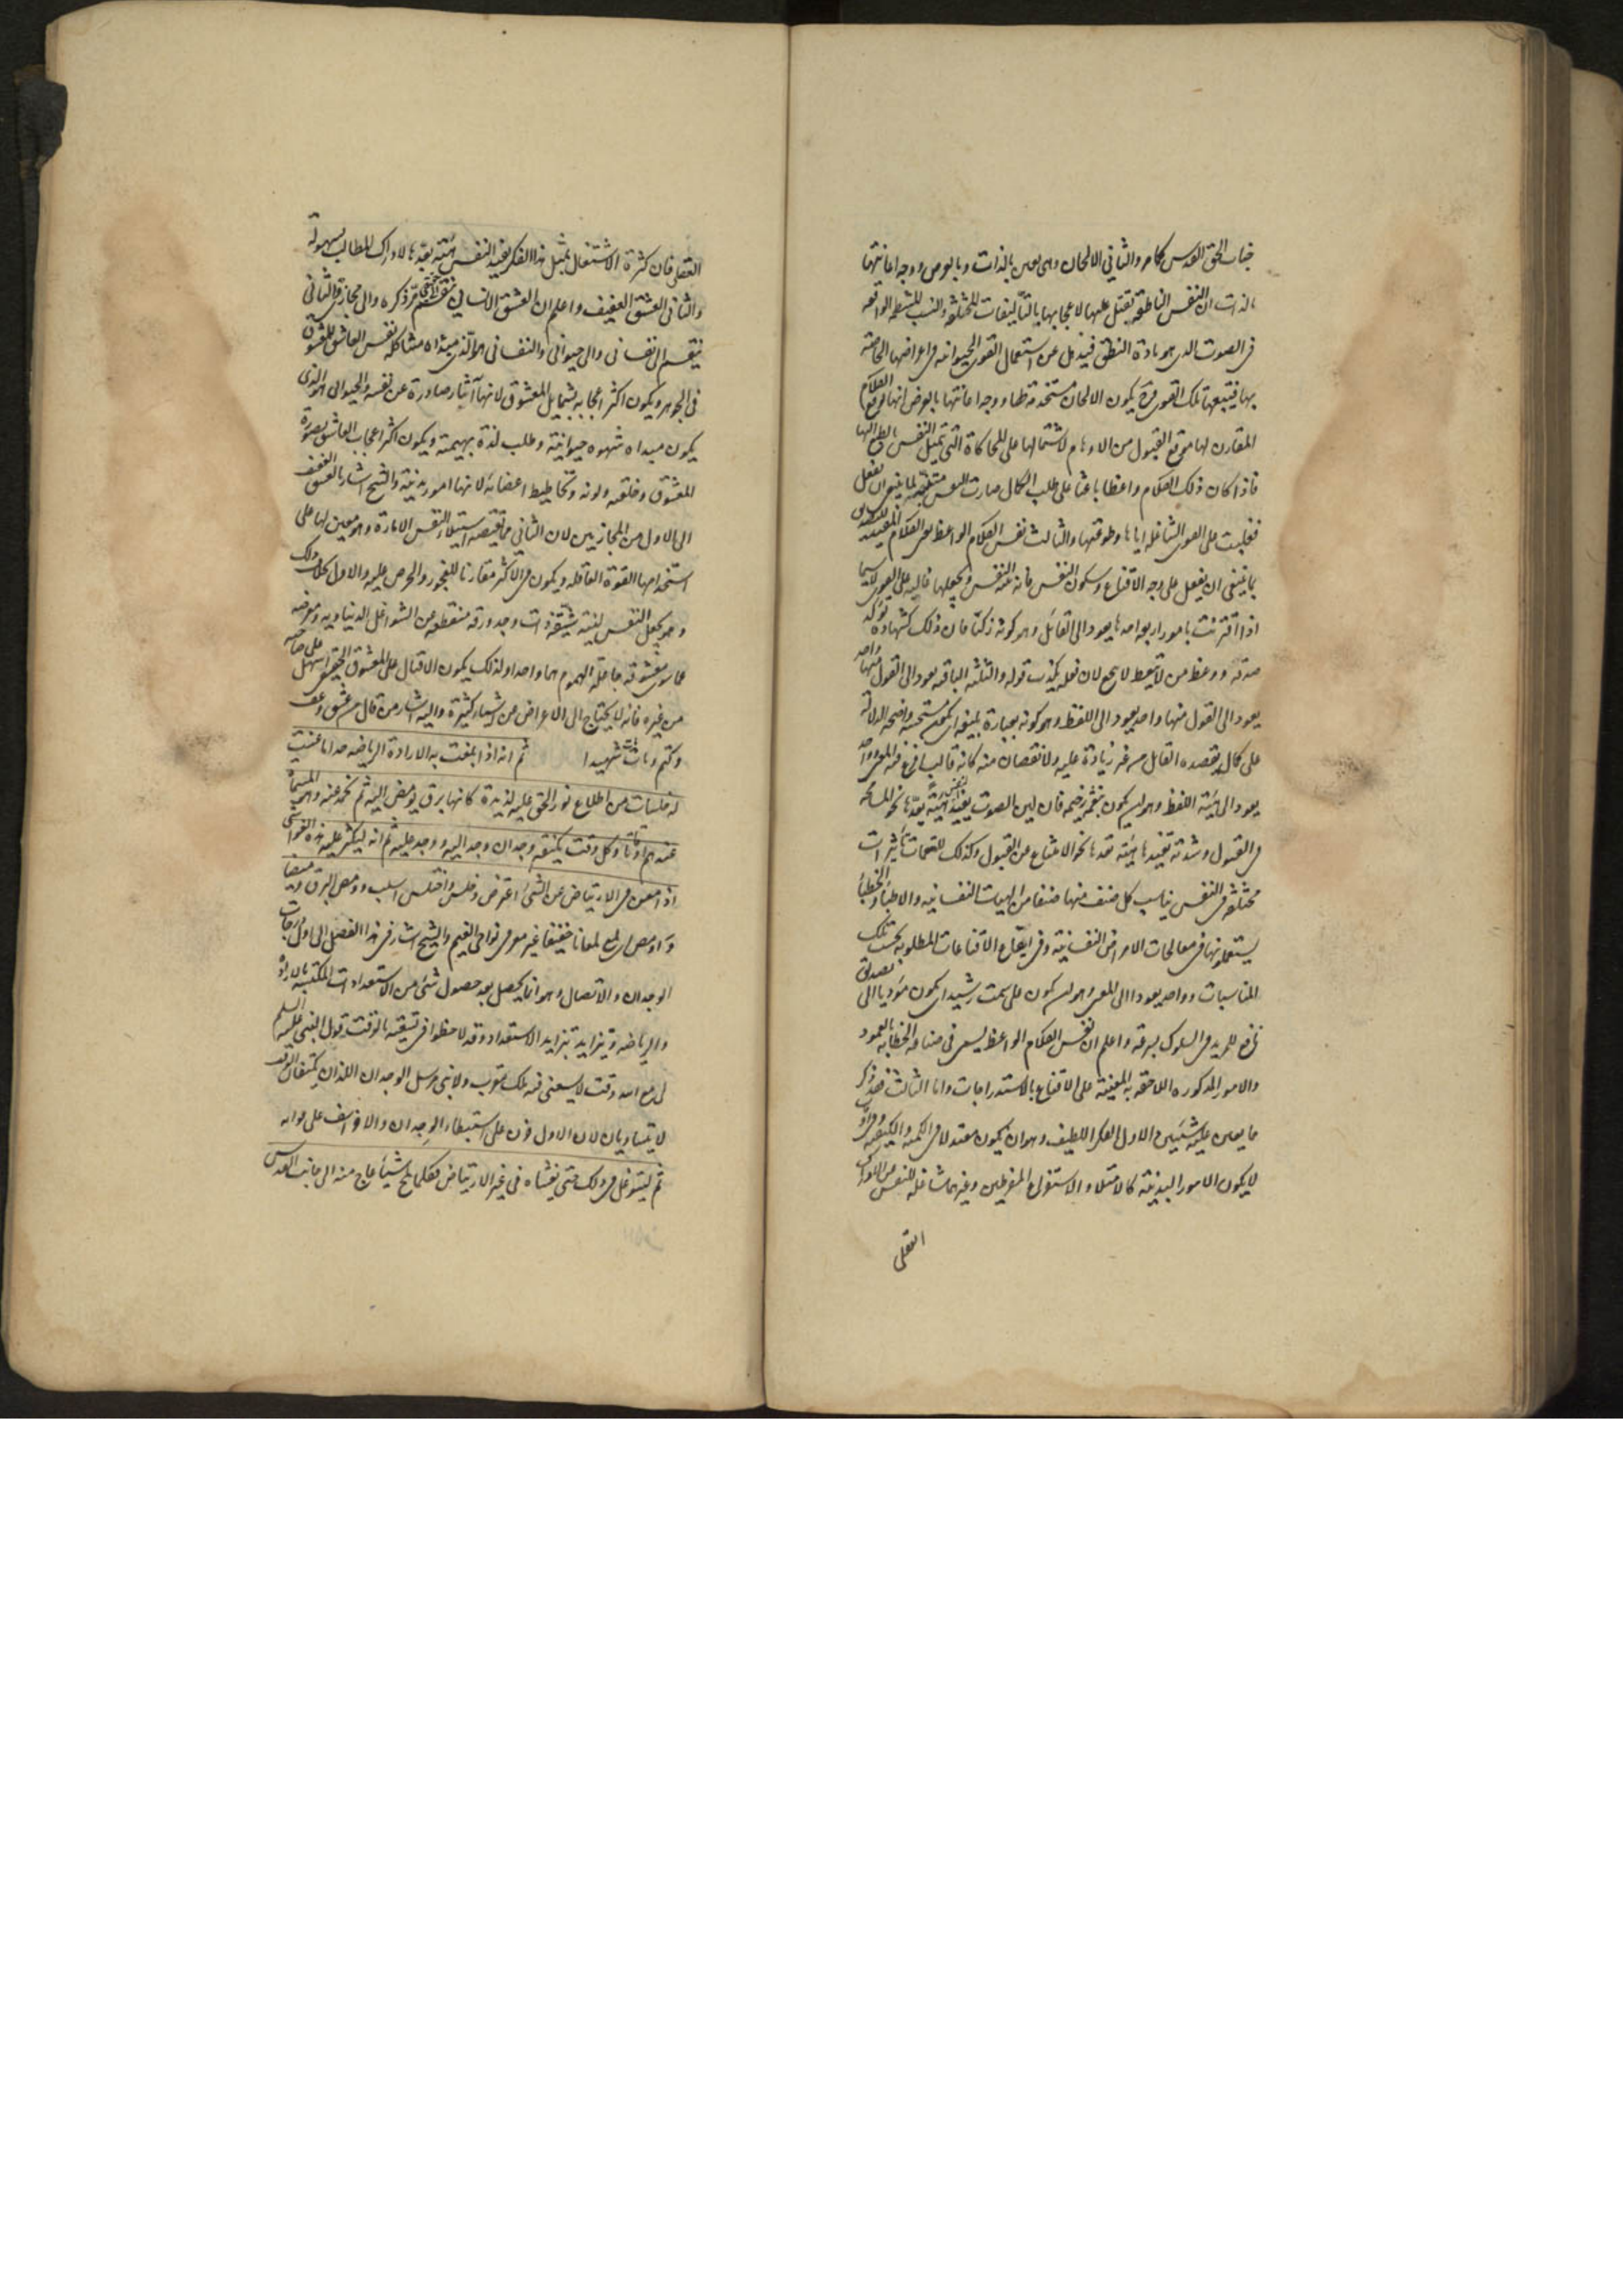 جناب الحق القدس كما مر والثاني الالحان وهى تعين بالذات وبالعرض ووجه اعانتها
بالذات ان النفس الناطقة تقبل عليها لاعجابها بالتأليفات المتفقة والنسب المنتظمة الواقعة
فى الصوت الذى هو مادة النطق فيذهل عن استعمال القوى الحيوانية فى اغراضها الخاصة
بها فيتبعها تلك القوى فح يكون الالحان مستخدمة لها ووجه اعانتها بالعرض انها توقع الكلام
المقارن لها موقع القبول من الاوهام لاشتمالها على المحاكاة التى تميل النفس بالطبع اليها
فاذا كان ذلك الكلام واعظا باعثا على طلب الكمال صارت النفس متنبهة لما ينبغى ان يفعل
فغلبت على القوى الشاغلة اياها وطوعتها والثالث نفس الكلام الواعظ اعنى الكلام المفيد للتصديق
بما ينبغى ان يفعل على وجه الاقناع وسكون النفس فانه ينبه النفس ويجعلها غالبة على القوى لاسيما
اذا اقترنت بامور اربعة احدها يعود الى القائل وهو كونه زكيا فان ذلك كشهادة تؤكد
صدقه ووعظ من لا يتعظ لا ينجع لان فعله يكذب قوله والثلثة الباقية يعود الى القول منها واحد
يعود الى القول منها واحد يعود الى اللفظ وهو كونه بعبارة بليغة اى يكون مستحسنة واضحة الدلالة
على كمال ما يقصده القائل من غير زيادة عليه ولا نقصان منه كانه قالب افرغ فيه المعنى وواحد
يعود الى هيئة اللفظ وهو ان يكون بنغمة رخيمة فان لين الصوت يفيد النفس هيئة يعدها نحو المسامحة
فى القبول وشدته تفيدها هيئة تعدها نحو الامتناع عن القبول وكذلك للنغمات تأثيرات
مختلفة فى النفس يناسب كل صنف منها صنفا من الهيئات النفسانية والاطباء والخطباء
يستعملونها فى معالجات الامراض النفسانية وفى ايقاع الاقناعات المطلوبة بحسب تلك
المناسبات وواحد يعود الى المعنى وهو ان يكون على سمت رشيد اى يكون مؤديا الى تصديق
نافع للمريد فى السلوك بسرعة واعلم ان نفس الكلام الواعظ يسمى فى صناعة الخطابة بالعمود
والامور المذكورة اللاحقة به المعينة على الاقناع بالاستدراجات واما الثالث فقد ذكر
ما يعين عليه شيئين الاول الفكر اللطيف وهو ان يكون معتدلا فى الكمية والكيفية وفى اوقات
لا يكون الامور البدنية كالامتلاء والاستفراغ المفرطين وغيرهما شاغلة للنفس عن الادراك
العقلى
العقلى فان كثرة الاشتغال بمثل هذا الفكر يفيد النفس هيئة يعدها لادراك المطالب بسهولة
والثانى العشق العفيف واعلم ان العشق الانسانى ينقسم الى حقيقى مر ذكره والى مجازى والثانى
ينقسم الى نفسانى والى حيوانى والنفسانى هو الذى مبدأه مشاكلة نفس العاشق للمعشوق
فى الجوهر ويكون اكثر اعجابه بشمايل المعشوق لانها آثار صادرة عن نفسه والحيوانى هو الذى
يكون مبدأه شهوة حيوانية وطلب لذة بهيمية ويكون اكثر اعجاب العاشق بصورة
المعشوق وخلقته ولونه وتخاطيط اعضائه لانها امور بدنية والشيخ اشار بالعشق العفيف
الى الاول من المجازيين لان الثانى مما يقتضيه استيلاء النفس الامارة وهو معين لها على
استخدامها القوة العاقلة ويكون فى الاكثر مقارنا للفجور والحرص عليه والاول بخلاف ذلك
وهو يجعل النفس لينة شيقة ذات وجد ورقة منقطعة عن الشواغل الدنياوية معرضة
عما سوى معشوقه جاعلة الهموم هما واحدا ولذلك يكون الاقبال على المعشوق الحقيقى اسهل على صاحبه
من غيره فانه لا يحتاج الى الاعراض عن اشياء كثيرة واليه اشار من قال من عشق وعف
وكتم ومات مات شهيدا ثم انه اذا بلغت به الارادة والرياضة حدا ما عنت
له خلسات من اطلاع نور الحق عليه لذيذة كانها بروق يومض اليه ثم تخمد عنه وهى المسماة
عندهم اوقاتا وكل وقت يكتنفه وجدان وجد اليه ووجد عليه ثم انه ليكثر عليه هذه الغواشى
اذا امعن فى الارتياض عن الشئ اعترض وخلس واختلس استلب وومض البرق وميضا
واومض لمع لمعانا خفيفا غير معترض فى نواحى الغيم والشيخ اشار فى هذا الفصل الى اول درجات
الوجدان والاتصال وهو انما يحصل بعد حصول شئ من الاستعدادات المكتسبة بالارادة
والرياضة ويتزايد بتزايد الاستعداد وقد لاحظوا فى تسميته بالوقت قول النبى عليه السلم
لى مع الله وقت لا يسعنى فيه ملك مقرب ولا نبى مرسل الوجدان اللذان يكتنفان الوقت
لا يتساويان لان الاول حزن على استبطاء الوجدان والاخر اسف على فواته
ثم ليتوغل فى ذلك حتى يغشاه فى غير الارتياض فكلما لمح شيئا عاج منه الى جانب القدس